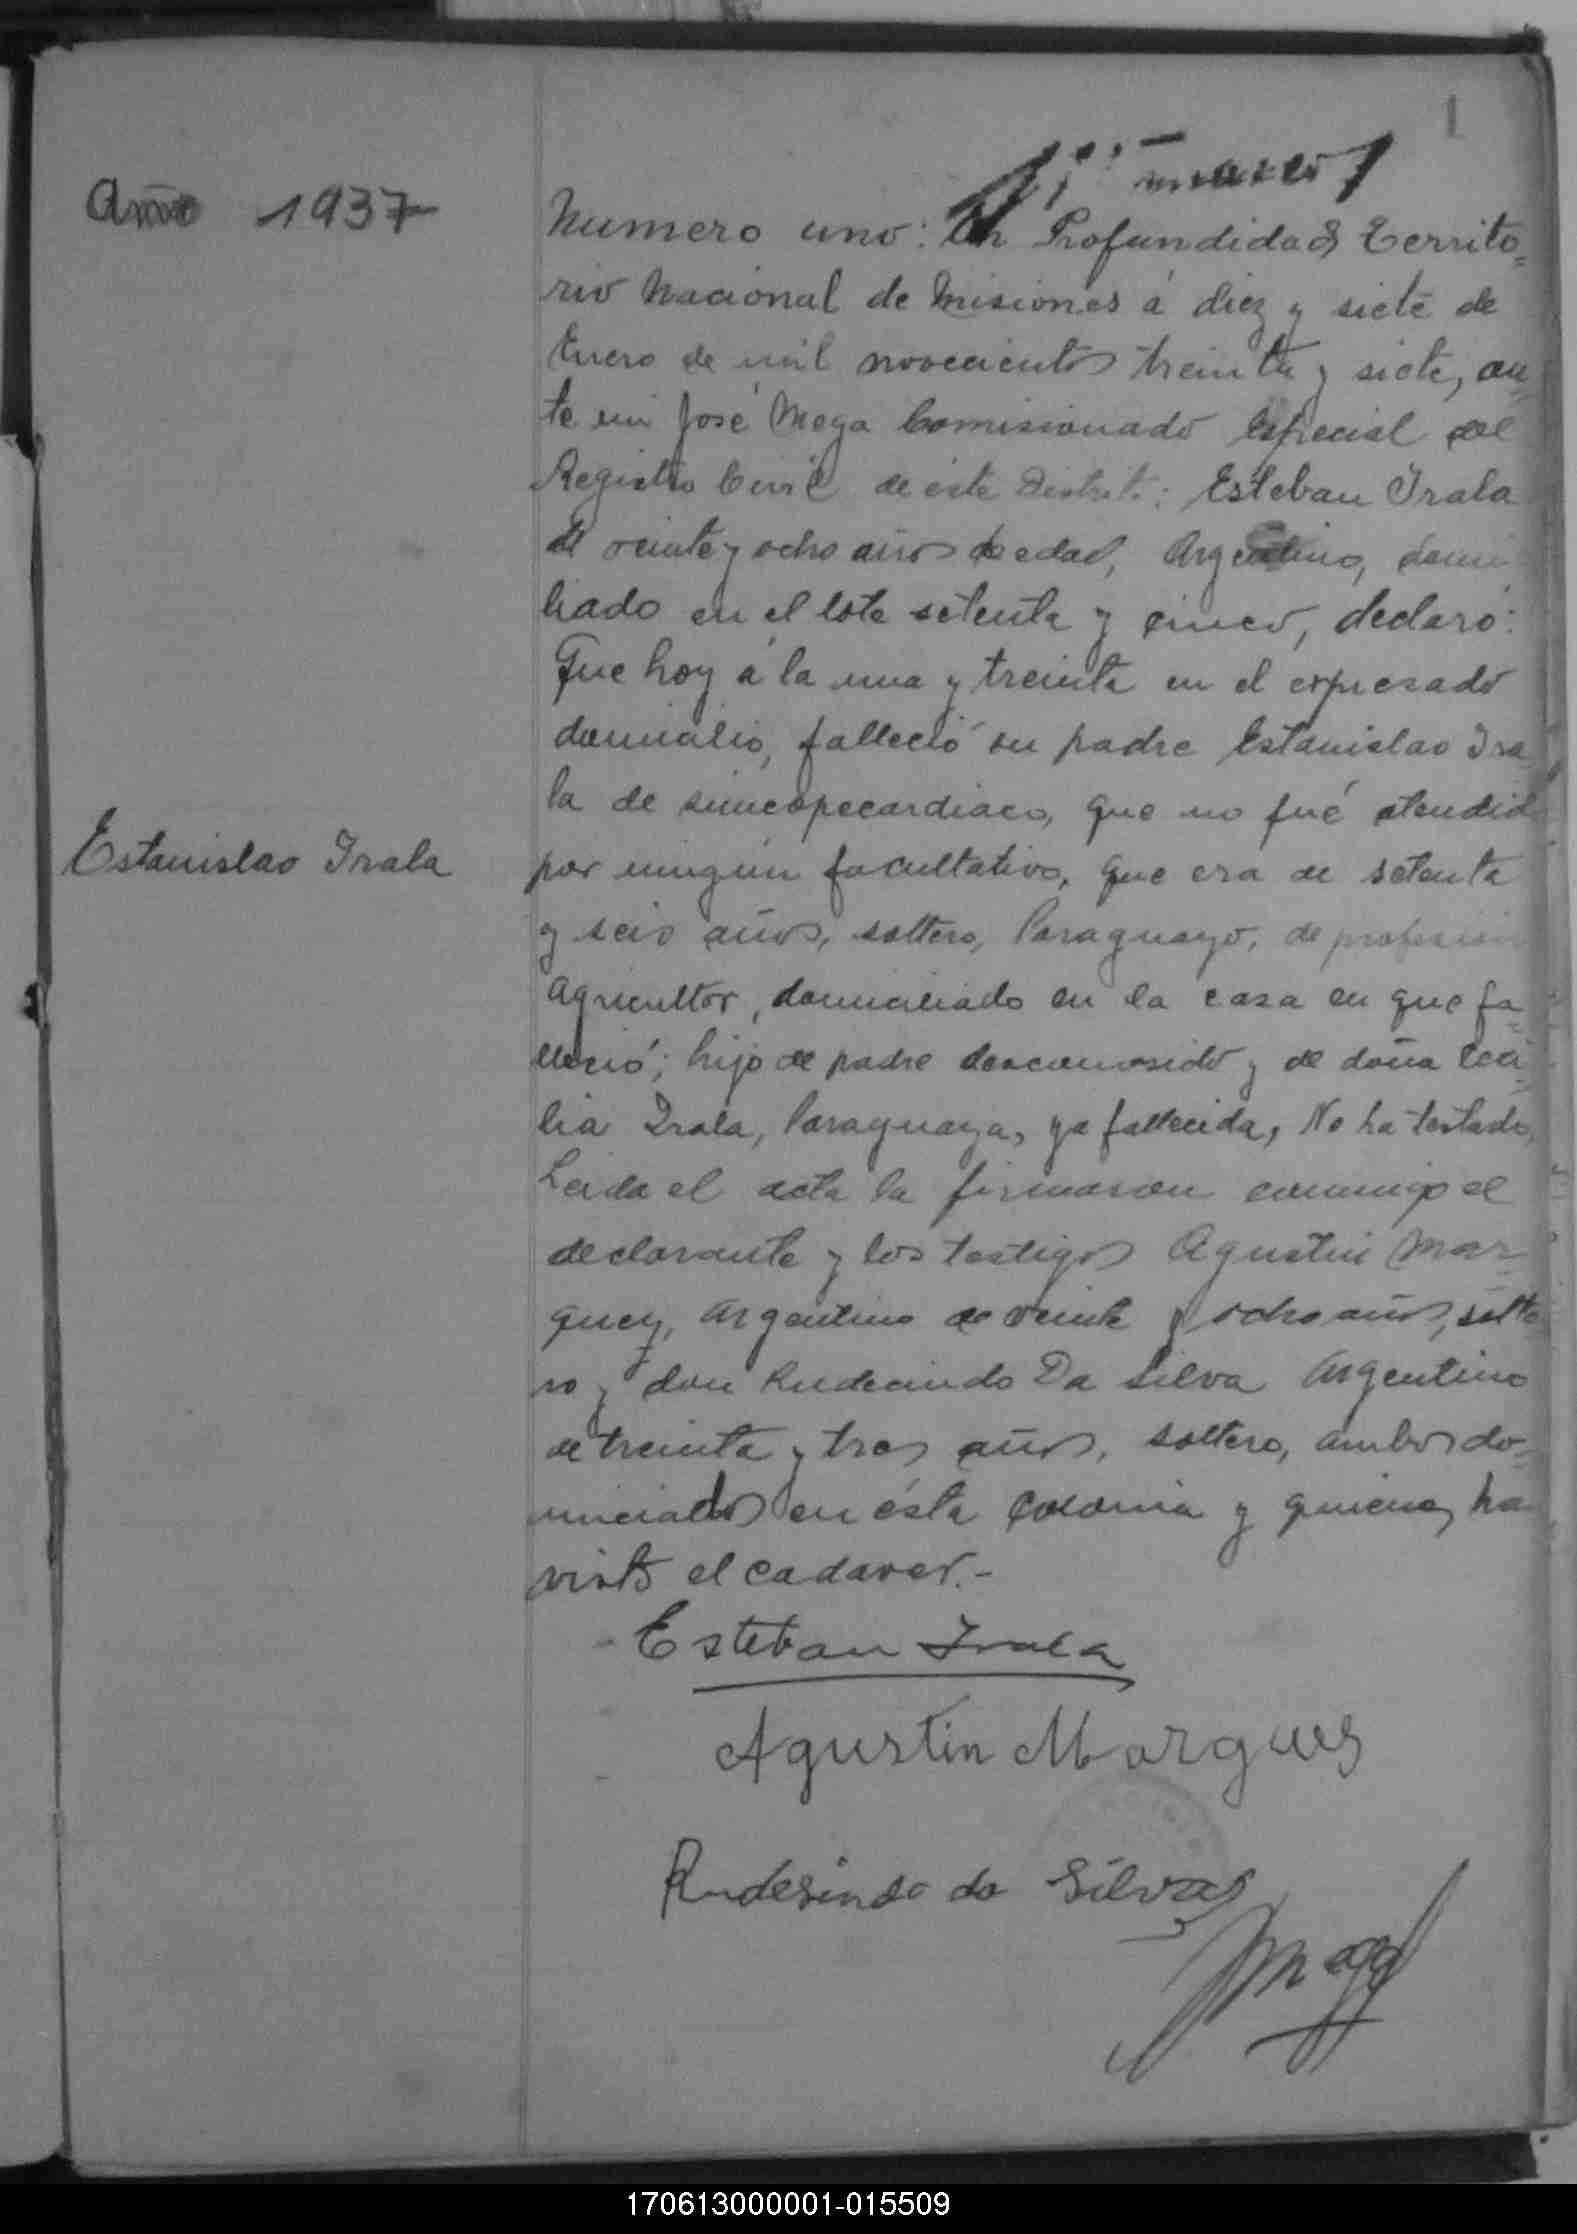 1
Año 1937
Numero uno: En Profundidad Territo=
rio Nacional de Misiones á diez y siete de
Enero de mil novecientos treinta y siete, an=
te mi José Mega Comisionado Especial del
Registro Civil de este Distrito: Esteban Irala
de veinte y ocho años de edad, Argentino, domi
liado en el lote setenta y cinco, declaró:
Que hoy á la una y treinta en el expresado
domicilio, falleció su padre Estanislao Ira
la de sincopecardiaco, que no fué atendid
Estanislao Irala
por ningún facultativo, que era de setenta
y seis años, soltero, Paraguayo, de profesión
agricultor, domiciliado en la casa en que fa=
lleció; hijo de padre desconosido y de doña Ceci=
lia Irala, Paraguaya, ya fallecida, No ha testado,
Leida el acta la firmaron conmigo el
declarante y los testigos Agustin Mar=
quez, Argentino de veinte y ocho años, solte
ro y don Rudecindo Da Silva Argentino
de treinta y tres años, soltero, ambos do=
miciados en ésta Colonia y quienes ha
visto el cadaver.-
Esteban Irala
Agustin Marques
Rudesindo da Silva
JMega
170613000001-015509